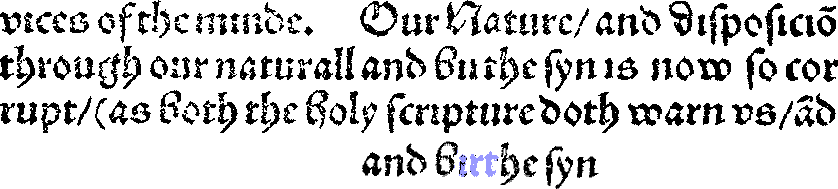 vices of the minde. Our Nature/ and disposiciō
through our naturall and buthe syn is now so cor
rupt/(as both the holy scripture doth warn vs/ād
and birthe syn